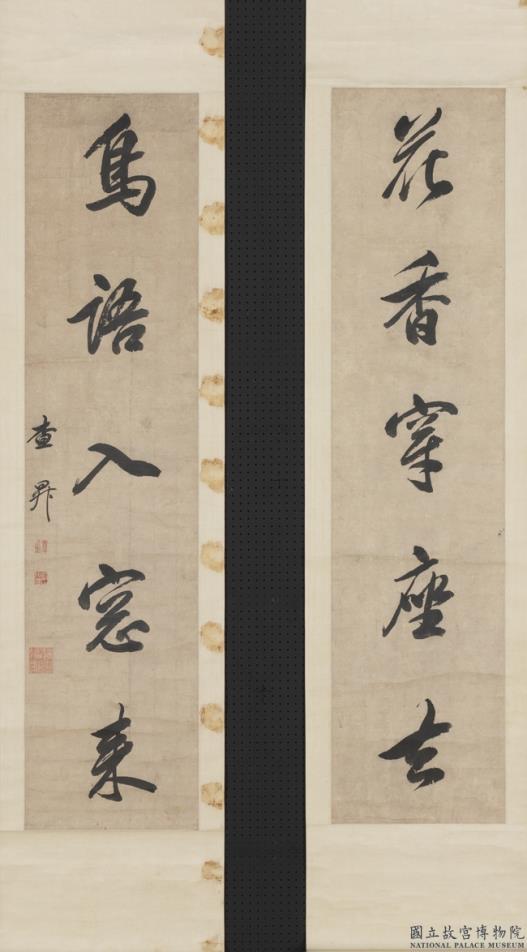 花香穿座去
鳥語入窓來
查昇
國立故宮博物院
NATIONAL PALACE MUSEUM